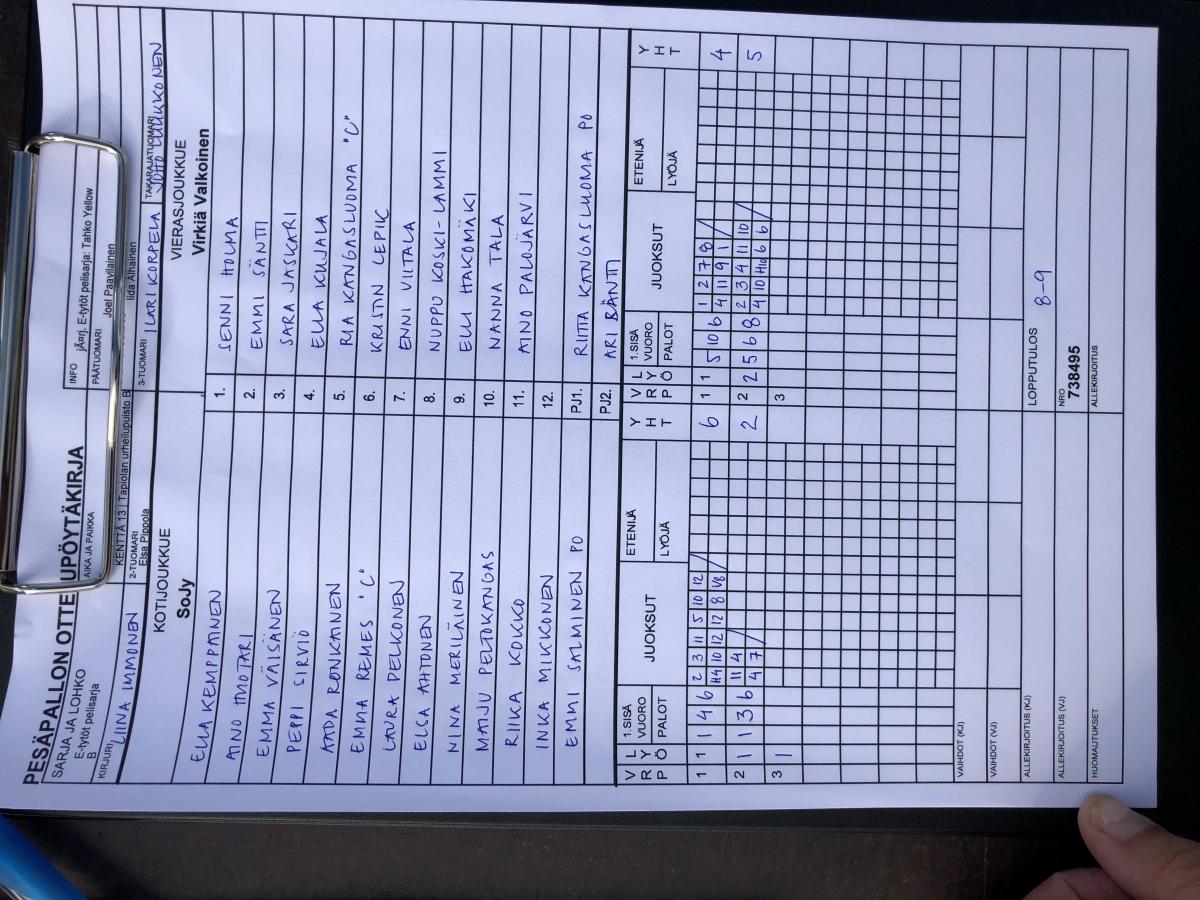 PESÄPALLON OTTELUPÖYTÄKIRJA
SARJA JA LOHKO
E-tytöt pelisarja
B
AIKA JA PAIKKA
KENTTÄ 13 | Tapiolan urheilupuisto B
INFO
jÃ¤rj. E-tytöt pelisarja: Tahko Yellow
PÄÄTUOMARI
Joel Paavilainen
KIRJURI
LIINA IMMONEN
2-TUOMARI
Elsa Pippola
Iida Alhainen
3-TUOMARI
ILARI KORPELA
TAKARAJATUOMARI
KOTIJOUKKUE
VIERASJOUKKUE
SoJy
Virkiä Valkoinen
ELLA KEMPPAINEN 1. SENNI HOLMA
AINO HUOTARI 2. EMMI SÄNTTI
EMMA VÄISÄNEN 3. SARA JASKARI
PEPPI SIRVIÖ 4. ELLA KUJALA
AADA RONKAINEN 5. RIA KANGASLUOMA "C"
EMMA REMES "C" 6. KRISTIN LEPIK
LAURA PELKONEN 7. ENNI VIITALA
ELSA AHTONEN 8. NUPPU KOSKI-LAMMI
NIINA MERILÄINEN 9. ELLI HAKOMÄKI
MAIJU PELTOKANGAS 10. NANNA TALA
RIIKA KOKKO 11. AINO PALOJÄRVI
INKA MIKKONEN 12.
EMMI SALMINEN PO PJ1. RIITTA KANGASLUOMA PO
PJ2. ARI BÄNTTI
VRP LYÖ 1.SISÄ VUORO PALOT JUOKSUT ETENIJÄ LYÖJÄ YHT VRP LYÖ 1.SISÄ VUORO PALOT JUOKSUT ETENIJÄ LYÖJÄ YHT
1 1 1 4 6 2 3 11 5 10 12 6 1 1 5 10 6 1 2 7 8 4
H4 10 12 12 8 V8 4 11 9 1
2 1 1 3 6 11 4 2 2 2 5 6 8 2 3 4 11 10 5
4 7 4 10 H10 6 6
3 1 3
VAIHDOT (KJ)
VAIHDOT (VJ)
ALLEKIRJOITUS (KJ)
LOPPUTULOS
8-9
ALLEKIRJOITUS (VJ)
NRO
738495
HUOMAUTUKSET
ALLEKIRJOITUS